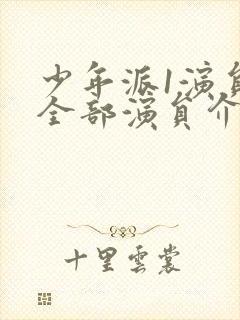 少年派1演员
全部演员介
十里雲裳